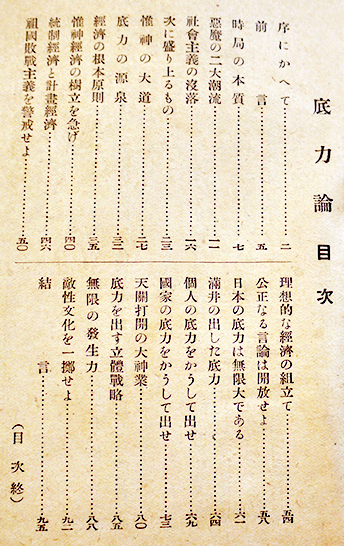 底力論 目次
序にかへて…………二
前言…………五
時局の本質…………七
惡魔の二大潮流…………一一
社會主義の沒落…………一六
次に盛り上るもの…………二三
惟神の大道…………二七
底力の源泉…………三二
經濟の根本原則…………三五
惟神經濟の樹立を急げ…………四〇
統制經濟と計畫經濟…………四六
祖國敗戰主義を警戒せよ…………五〇
理想的な經濟の組立て…………五四
公正なる言論は開放せよ…………五八
日本の底力は無限大である…………六一
滿井の出した底力…………六四
個人の底力をかうして出せ…………六九
國家の底力をかうして出せ…………七三
天關打開の大神業…………八〇
底力を出す立體戰略…………八五
無限の發生力…………八八
敵性文化を一擲せよ…………九二
結言…………九五
(目次終)